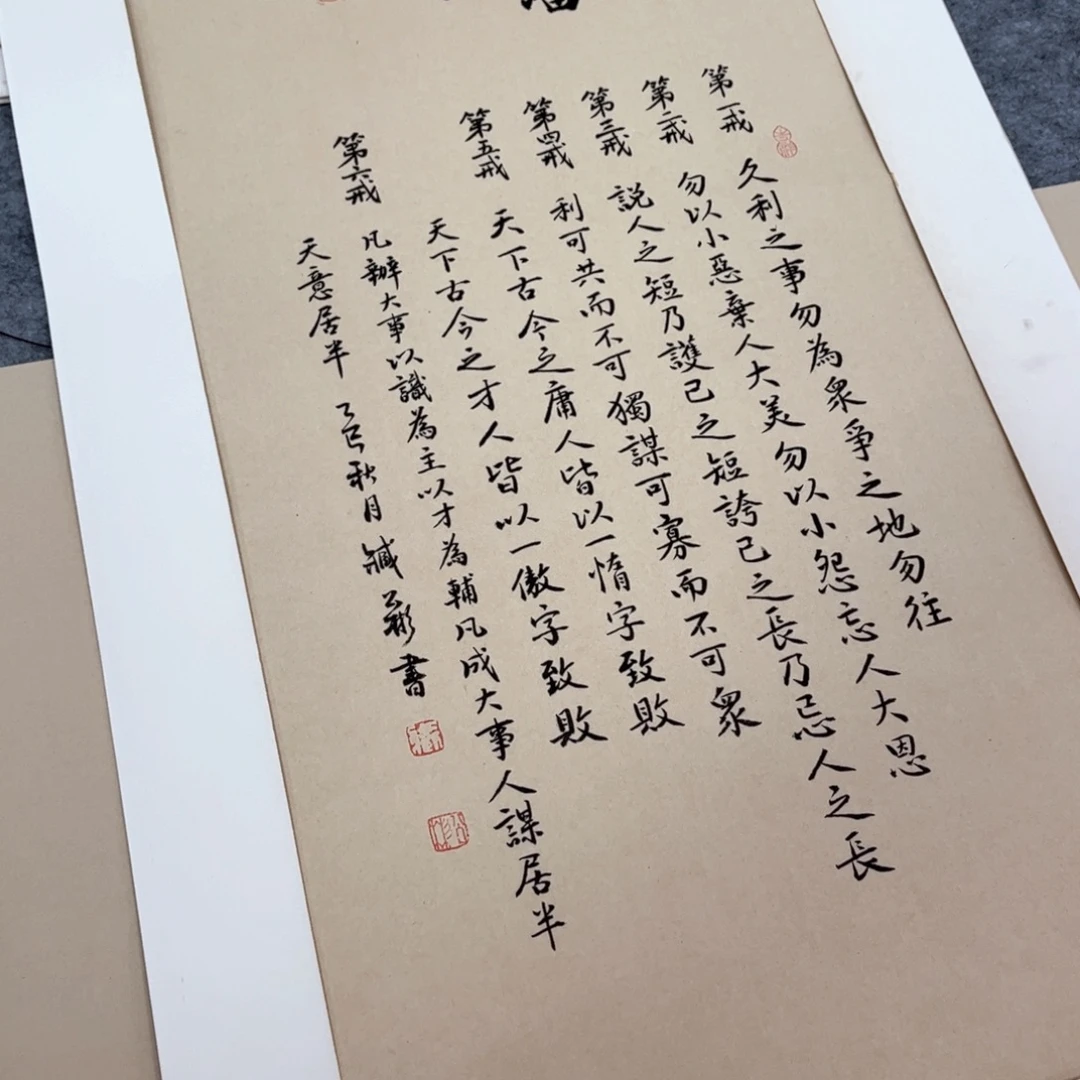 第一戒 久利之事勿為衆爭之地勿往
第二戒 勿以小惡棄人大美勿以小怨忘人大恩
第三戒 説人之短乃護己之短誇己之長乃忌人之長
第四戒 利可共而不可獨謀可寡而不可衆
第五戒 天下古今之庸人皆以一惰字致敗
天下古今之才人皆以一傲字致敗
第六戒 凡辦大事以識為主以才為輔凡成大事人謀居半
天意居半 乙巳秋月 書